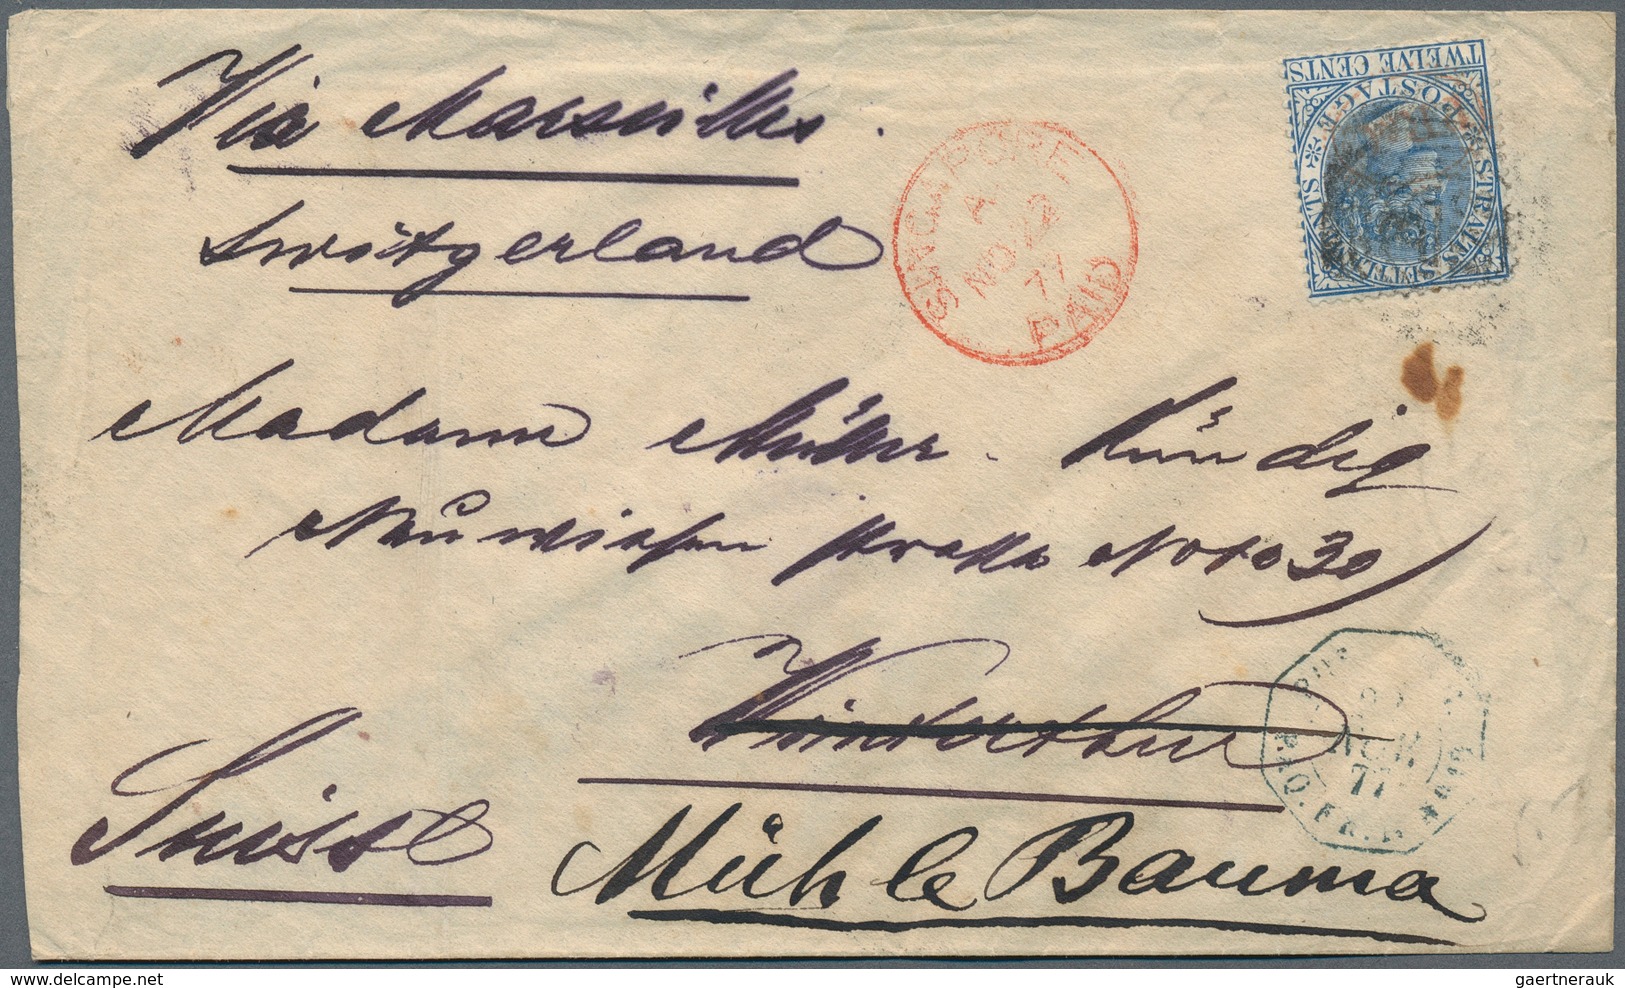 Via Marseilles.
Switzerland
TWELVE CENTS
STRAITS SETTLEMENTS * POSTAGE *
SINGAPORE
A
NO 22
77
PAID
Madame Müller-Kündig
Neuwiesen strasse No 30
Winterthur
Suisse
Mühle Bauma
NOV.
77
PAQ. FR.
gaertnerauk